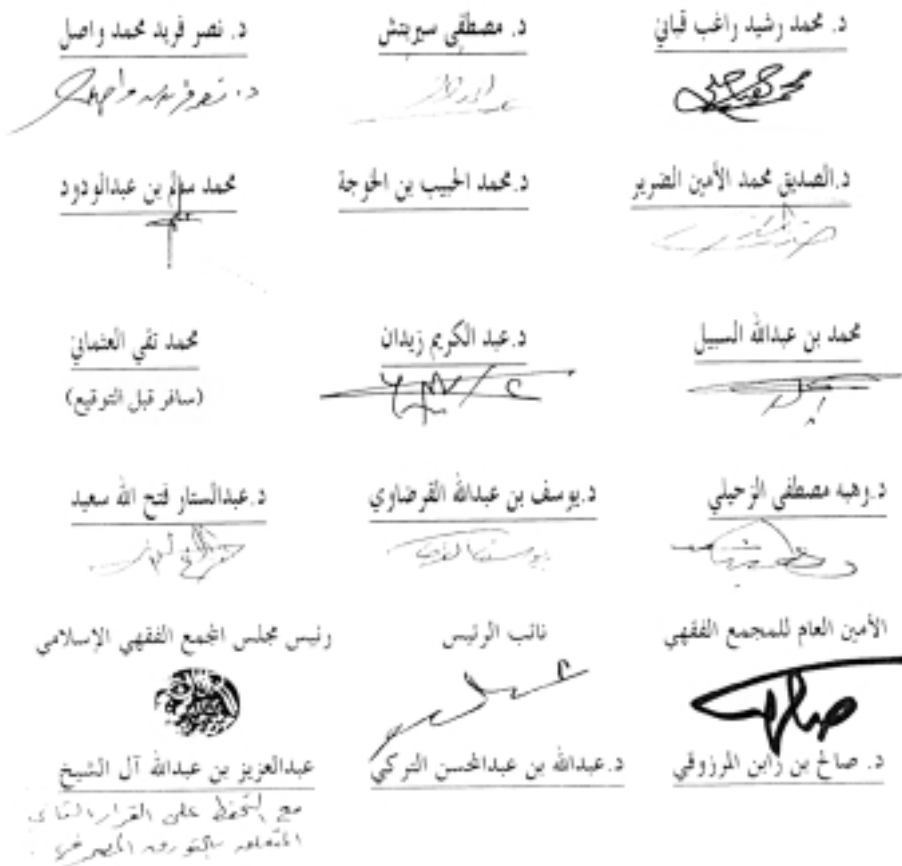 د. محمد رشيد راغب قباني د. مصطفى سيريتش د. نصر فريد محمد واصل
د. نصر فريد واصل
د.الصديق محمد الأمين الضرير د.محمد الحبيب بن الخوجة محمد سالم بن عبدالودود
محمد بن عبدالله السبيل د.عبد الكريم زيدان محمد تقي العثماني
(سافر قبل التوقيع)
د.وهبه مصطفى الزحيلي د.يوسف بن عبدالله القرضاوي د.عبدالستار فتح الله سعيد
الأمين العام للمجمع الفقهي نائب الرئيس رئيس مجلس المجمع الفقهي الإسلامي
د. صالح بن زابن المرزوقي د.عبدالله بن عبدالمحسن التركي عبدالعزيز بن عبدالله آل الشيخ
مع التحفظ على القرار الثاني
المتعلق بالتورق المصرفي